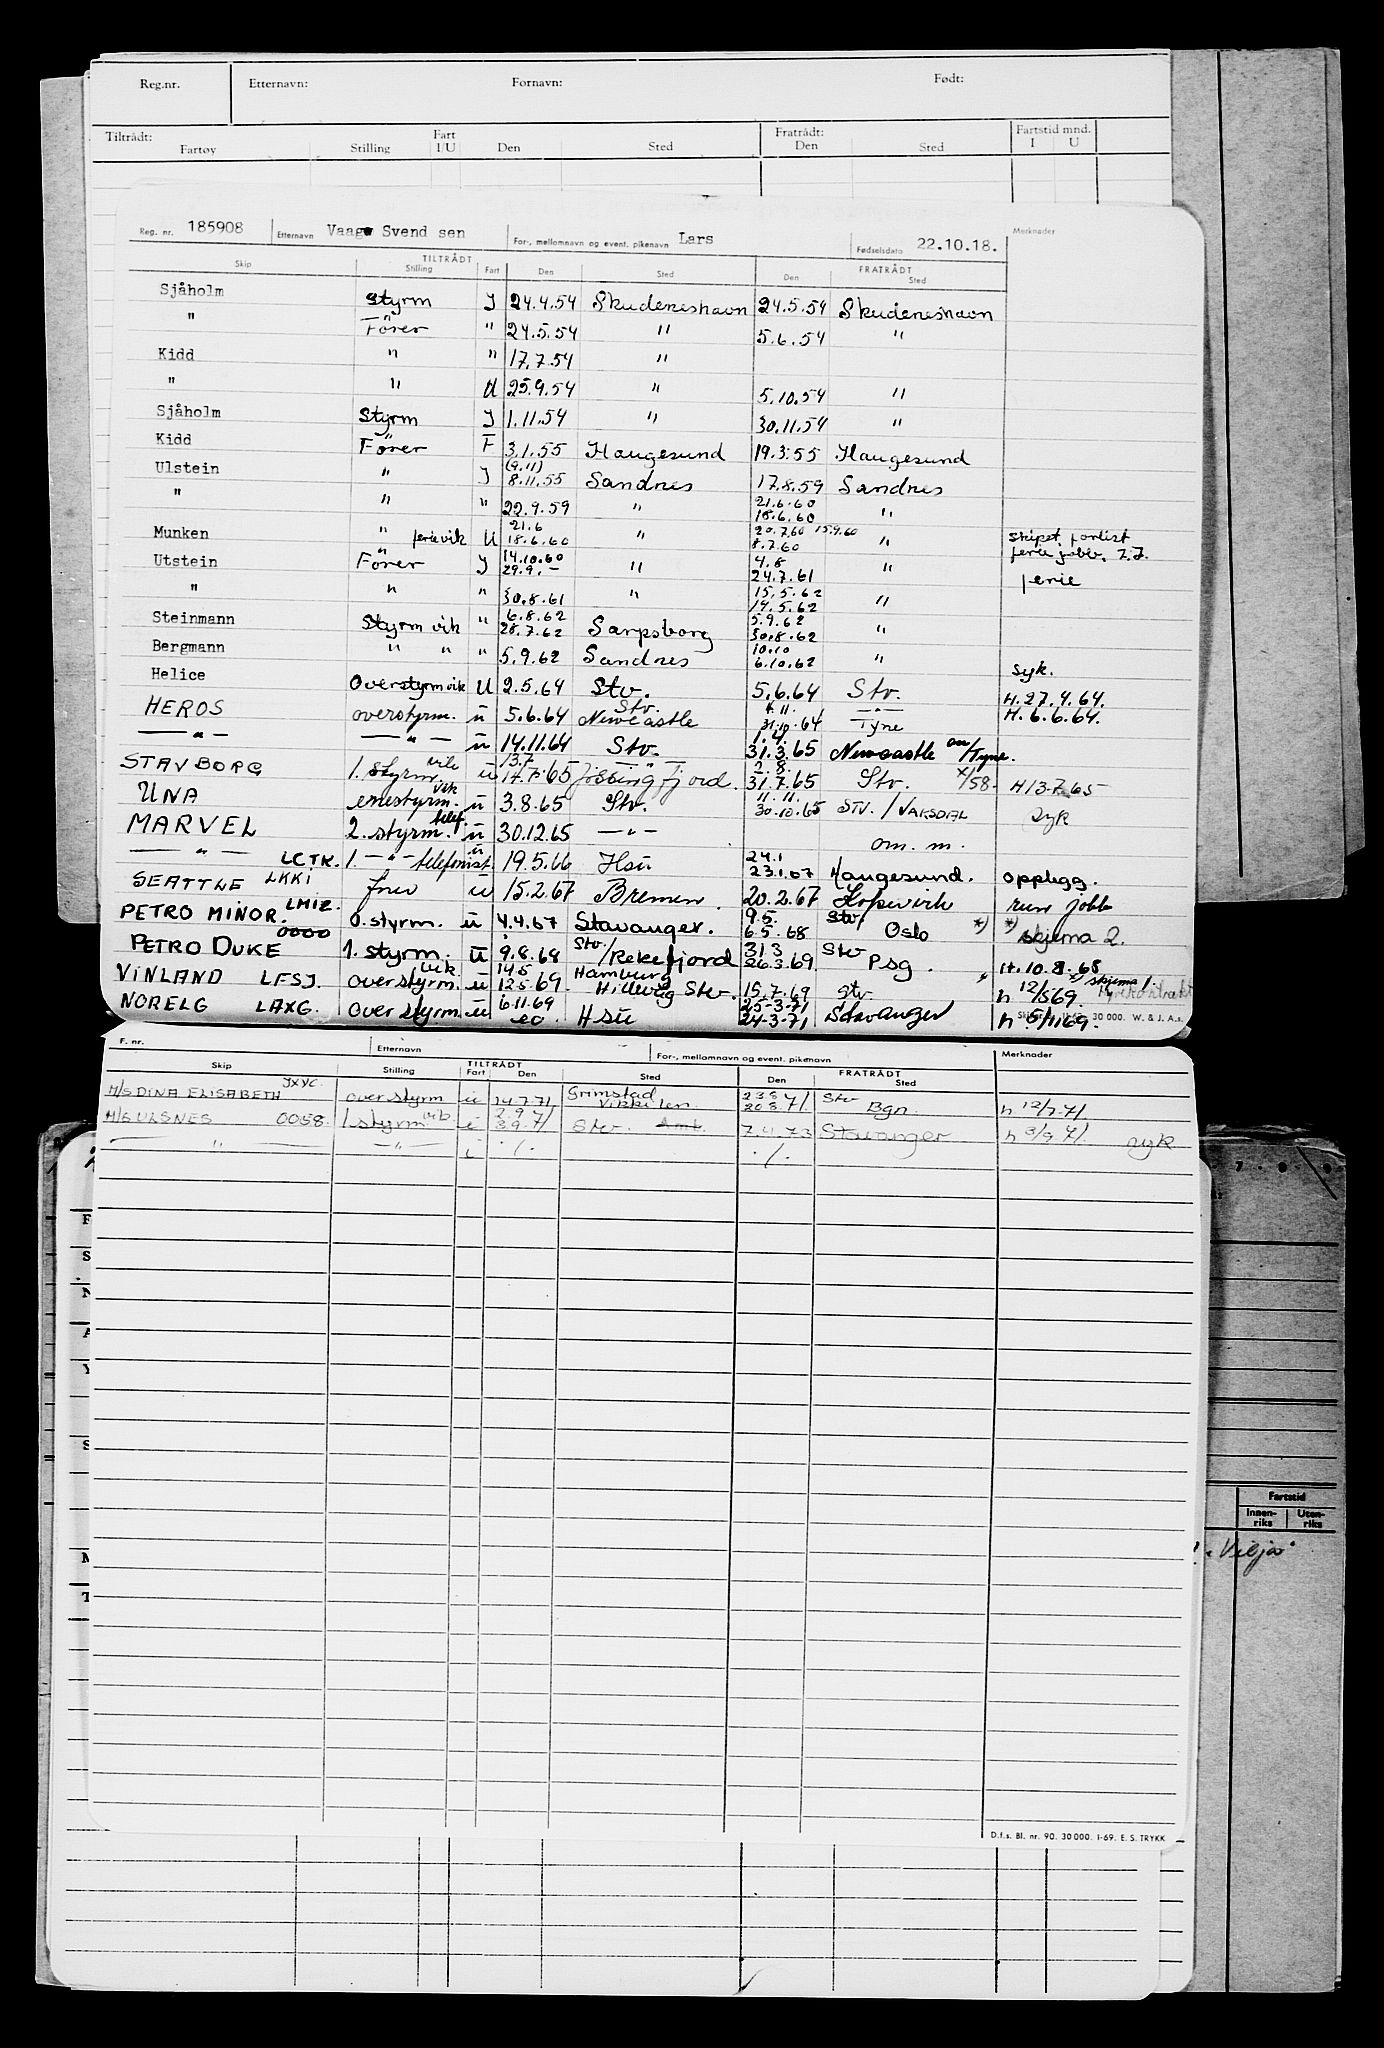 Reg.nr. Etternavn: Fornavn: Født:
Tiltrådt: Fart Fratrådt: Fartstid mnd.
Fartøy Stilling I/U Den Sted Den Sted I U
Reg. nr. 185908 Etternavn Vaage Svend sen For-, mellomnavn og event. pikenavn Lars Fødselsdato 22.10.18. Merknader
TILTRÅDT FRATRÅDT
Skip Stilling Fart Den Sted Den Sted
Sjåholm Styrm J 24.4.54 Skudeneshavn 24.5.54 Skudeneshavn
" Förer " 24.5.54 " 5.6.54 "
Kidd " " 17.7.54 "
" " U 25.9.54 " 5.10.54 "
Sjåholm Styrm J 1.11.54 " 30.11.54 "
Kidd Förer F 3.1.55 Haugesund 19.3.55 Haugesund
Ulstein " J (9.11) 8.11.55 Sandnes 17.8.59 Sandnes
" " " 22.9.59 " 21.6.60 18.6.60 "
Munken " ferievik U 21.6 18.6.60 " 20.7.60 15.9.60 8.7.60 " Skipet forlist
Utstein Förer J 14.10.60 29.9.- " 4.8 24.7.61 " ferie
" " " 30.8.61 " 15.5.62 14.5.62 "
Steinmann Styrm vik " 6.8.62 28.7.62 Sarpsborg 5.9.62 30.8.62 "
Bergmann " " " 5.9.62 Sandnes 10.10 6.10.62 " Syk.
Helice Overstyrm vik U 2.5.64 Stv. 5.6.64 Stv. H.27.4.64.
HEROS overstyrm. u 5.6.64 Stv. Newcastle 4.11. 31.10.64 Tyne H.6.6.64.
—"— —"— u 14.11.64 Stv. 1.4. 31.3.65 Newcastle on/Tyne.
STAVBORG 1. styrm. vik u 13.7 14.7.65 Jössingfjord. 2.8. 31.7.65 Stv. x/58- H13.7.65
UNA enestyrm. vik u 3.8.65 Stv. 11.11. 30.10.65 STV. / VAKSDAL syk
MARVEL 2. styrm. telef. u 30.12.65 —"— om. m.
—"— LCTK. 1. —"— telefonist. u 19.5.66 Hsu 24.1 23.1.67 Haugesund. opplegg.
SEATTLE LKKI u 15.2.67 Bremen. 20.2.67 Kopervik run jobb
PETRO MINOR. LMIZ. o.styrm. u 4.4.67 Stavanger. 9.5. 6.5.68 Stv Oslo *) *) skjema 2.
PETRO DUKE 0000 1. styrm. u 9.8.68 Stv./Rekefjord 31.3 26.3.69. Stv Psg. H.10.8.68
VINLAND LFSJ. overstyrm. vik. u 14.5 12.5.69. Hamburg Hillevåg Stv. 15.7.69 Stv. h 12/5 69. skjema 1.
NORELG LAXG. overstyrm. u 6.11.69 Hsu 25-3-71 24-3-71 Stavanger h 6/11 69.
30 000. W. & J. A.s.
F. nr. Etternavn For-, mellomnavn og event. pikenavn Merknader
TILTRÅDT FRATRÅDT
Skip Stilling Fart Den Sted Den Sted
M/S DINA ELISABETH JXYC. overstyrm u 14.7.71 Grimstad Vikkilen. 23.8 20.8.71. Stv Bgn. h 12/7-71.
M/S ULSNES 0058. 1 styrm. vik i 2.9 3.9.71 Stv. 7.4.73 Stavanger h 3/9 71. syk
" —"— i ./. ./.
7.0.0
Fartstid
Innen-riks Uten-riks
"Vilja"
D.f.s. Bl. nr. 90. 30 000. 1-69. E. S. TRYKK